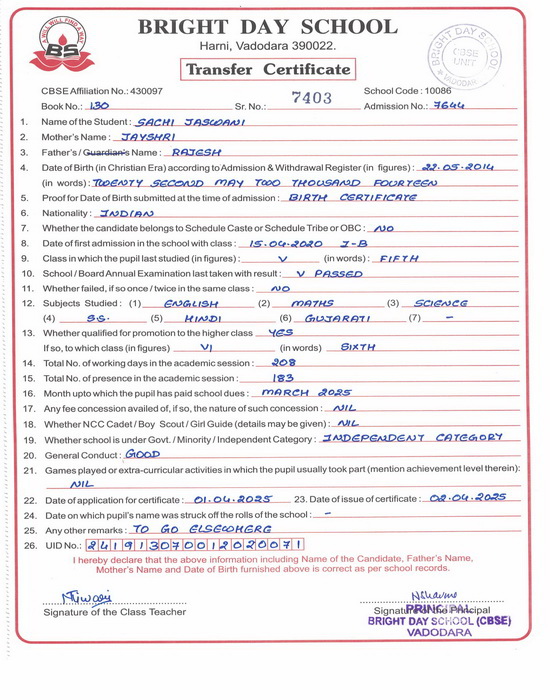 A WILL WILL FIND A WAY
BS
BRIGHT DAY SCHOOL
Harni, Vadodara 390022.
Transfer Certificate
BRIGHT DAY SCHOOL
CBSE
UNIT
VADODARA
CBSE Affiliation No.: 430097 School Code : 10086
Book No.: 130 Sr. No.: 7403 Admission No.: 7644
1. Name of the Student : SACHI JASWANI
2. Mother's Name : JAYSHRI
3. Father's / Guardian's Name : RAJESH
4. Date of Birth (in Christian Era) according to Admission & Withdrawal Register (in figures) : 22-05-2014
(in words) : TWENTY SECOND MAY TWO THOUSAND FOURTEEN
5. Proof for Date of Birth submitted at the time of admission : BIRTH CERTIFICATE
6. Nationality : INDIAN
7. Whether the candidate belongs to Schedule Caste or Schedule Tribe or OBC : NO
8. Date of first admission in the school with class : 15.04.2020 I-B
9. Class in which the pupil last studied (in figures) : V (in words) : FIFTH
10. School / Board Annual Examination last taken with result : V PASSED
11. Whether failed, if so once / twice in the same class : NO
12. Subjects Studied : (1) ENGLISH (2) MATHS (3) SCIENCE
(4) S.S. (5) HINDI (6) GUJARATI (7) -
13. Whether qualified for promotion to the higher class YES
If so, to which class (in figures) VI (in words) SIXTH
14. Total No. of working days in the academic session : 208
15. Total No. of presence in the academic session : 183
16. Month upto which the pupil has paid school dues : MARCH 2025
17. Any fee concession availed of, if so, the nature of such concession : NIL
18. Whether NCC Cadet / Boy Scout / Girl Guide (details may be given) : NIL
19. Whether school is under Govt. / Minority / Independent Category : INDEPENDENT CATEGORY
20. General Conduct : GOOD
21. Games played or extra-curricular activities in which the pupil usually took part (mention achievement level therein):
NIL
22. Date of application for certificate : 01.04.2025 23. Date of issue of certificate : 02.04.2025
24. Date on which pupil's name was struck off the rolls of the school : -
25. Any other remarks : TO GO ELSEWHERE
26. UID No.: 241913070012020071
I hereby declare that the above information including Name of the Candidate, Father's Name,
Mother's Name and Date of Birth furnished above is correct as per school records.
Signature of the Class Teacher Signature of the Principal
PRINCIPAL
BRIGHT DAY SCHOOL (CBSE)
VADODARA